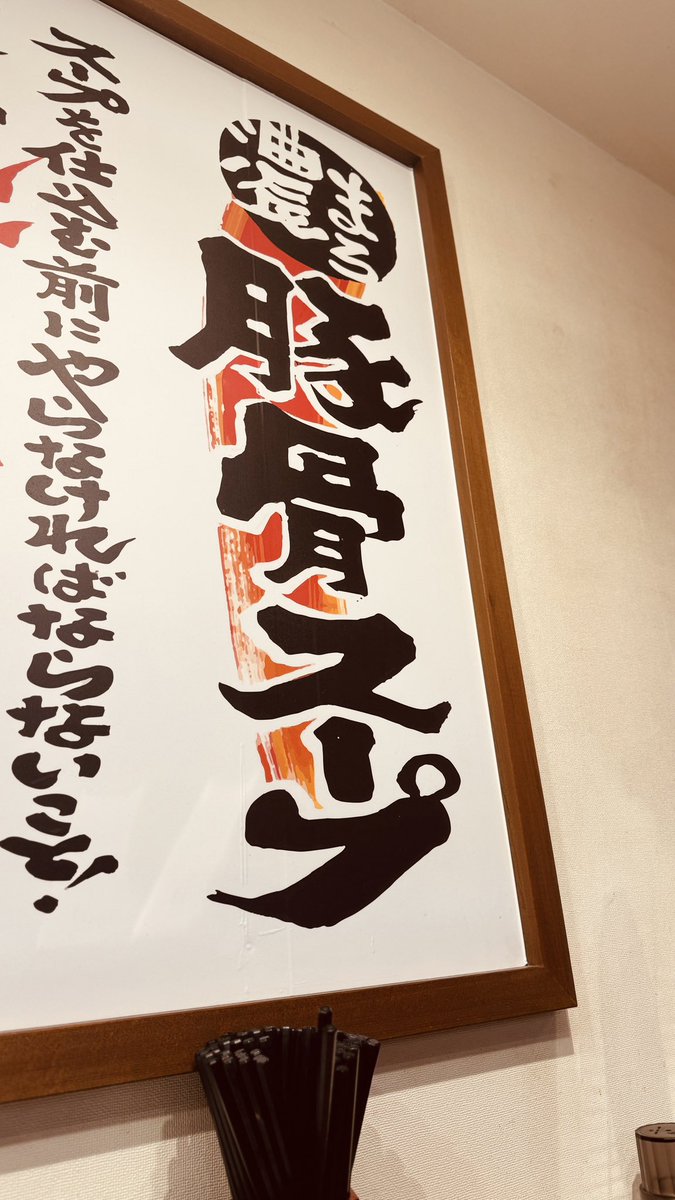 濃厚
まろ
豚骨スープ
スープを仕込む前にやらなければならないこと。